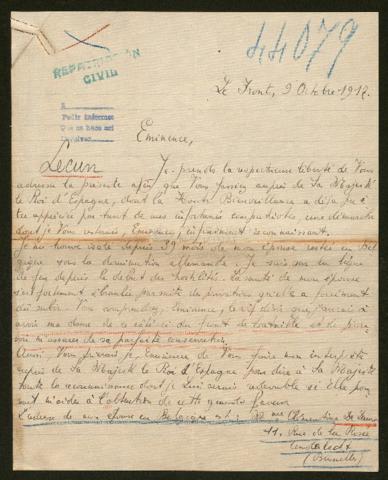 44079
REPATRIACIÓN
CIVIL
Le Front, 9 Octobre 1917.
Pedir informes
Que se hace así
Eminence,
Lecun
Je prends la respectueuse liberté de Vous
adresser la présente afin que Vous fassiez auprès de Sa Majesté
le Roi d'Espagne, dont la Haute Bienveillance a déjà été
appréciée par tant de mes infortunés compatriotes, une démarche
dont je Vous serais, Eminence, infiniment reconnaissant.
Je me trouve isolé depuis 39 mois de mon épouse restée en Bel
gique sous la domination allemande. Je suis sur la ligne
de feu depuis le début des hostilités. La santé de mon épouse
s'est fortement ébranlée par suite des privations qu'elle a forcément
dû subir. Vous comprendrez, Eminence, le vif désir que j'aurais à
avoir ma dame de ce côté-ci du front de
voir m'assurer de sa parfaite conservation.
Aussi Vous prierais-je, Eminence de Vous faire mon interprète
auprès de Sa Majesté le Roi d'Espagne pour dire à Sa Majesté
toute la reconnaissance dont je Lui serais redevable si Elle pou
vait m'aider à l'obtention de cette grande faveur.
L'adresse de mon épouse en Belgique est: Mme Clémentine
11, Rue de la Rosée
Anderlecht
(Bruxelles)